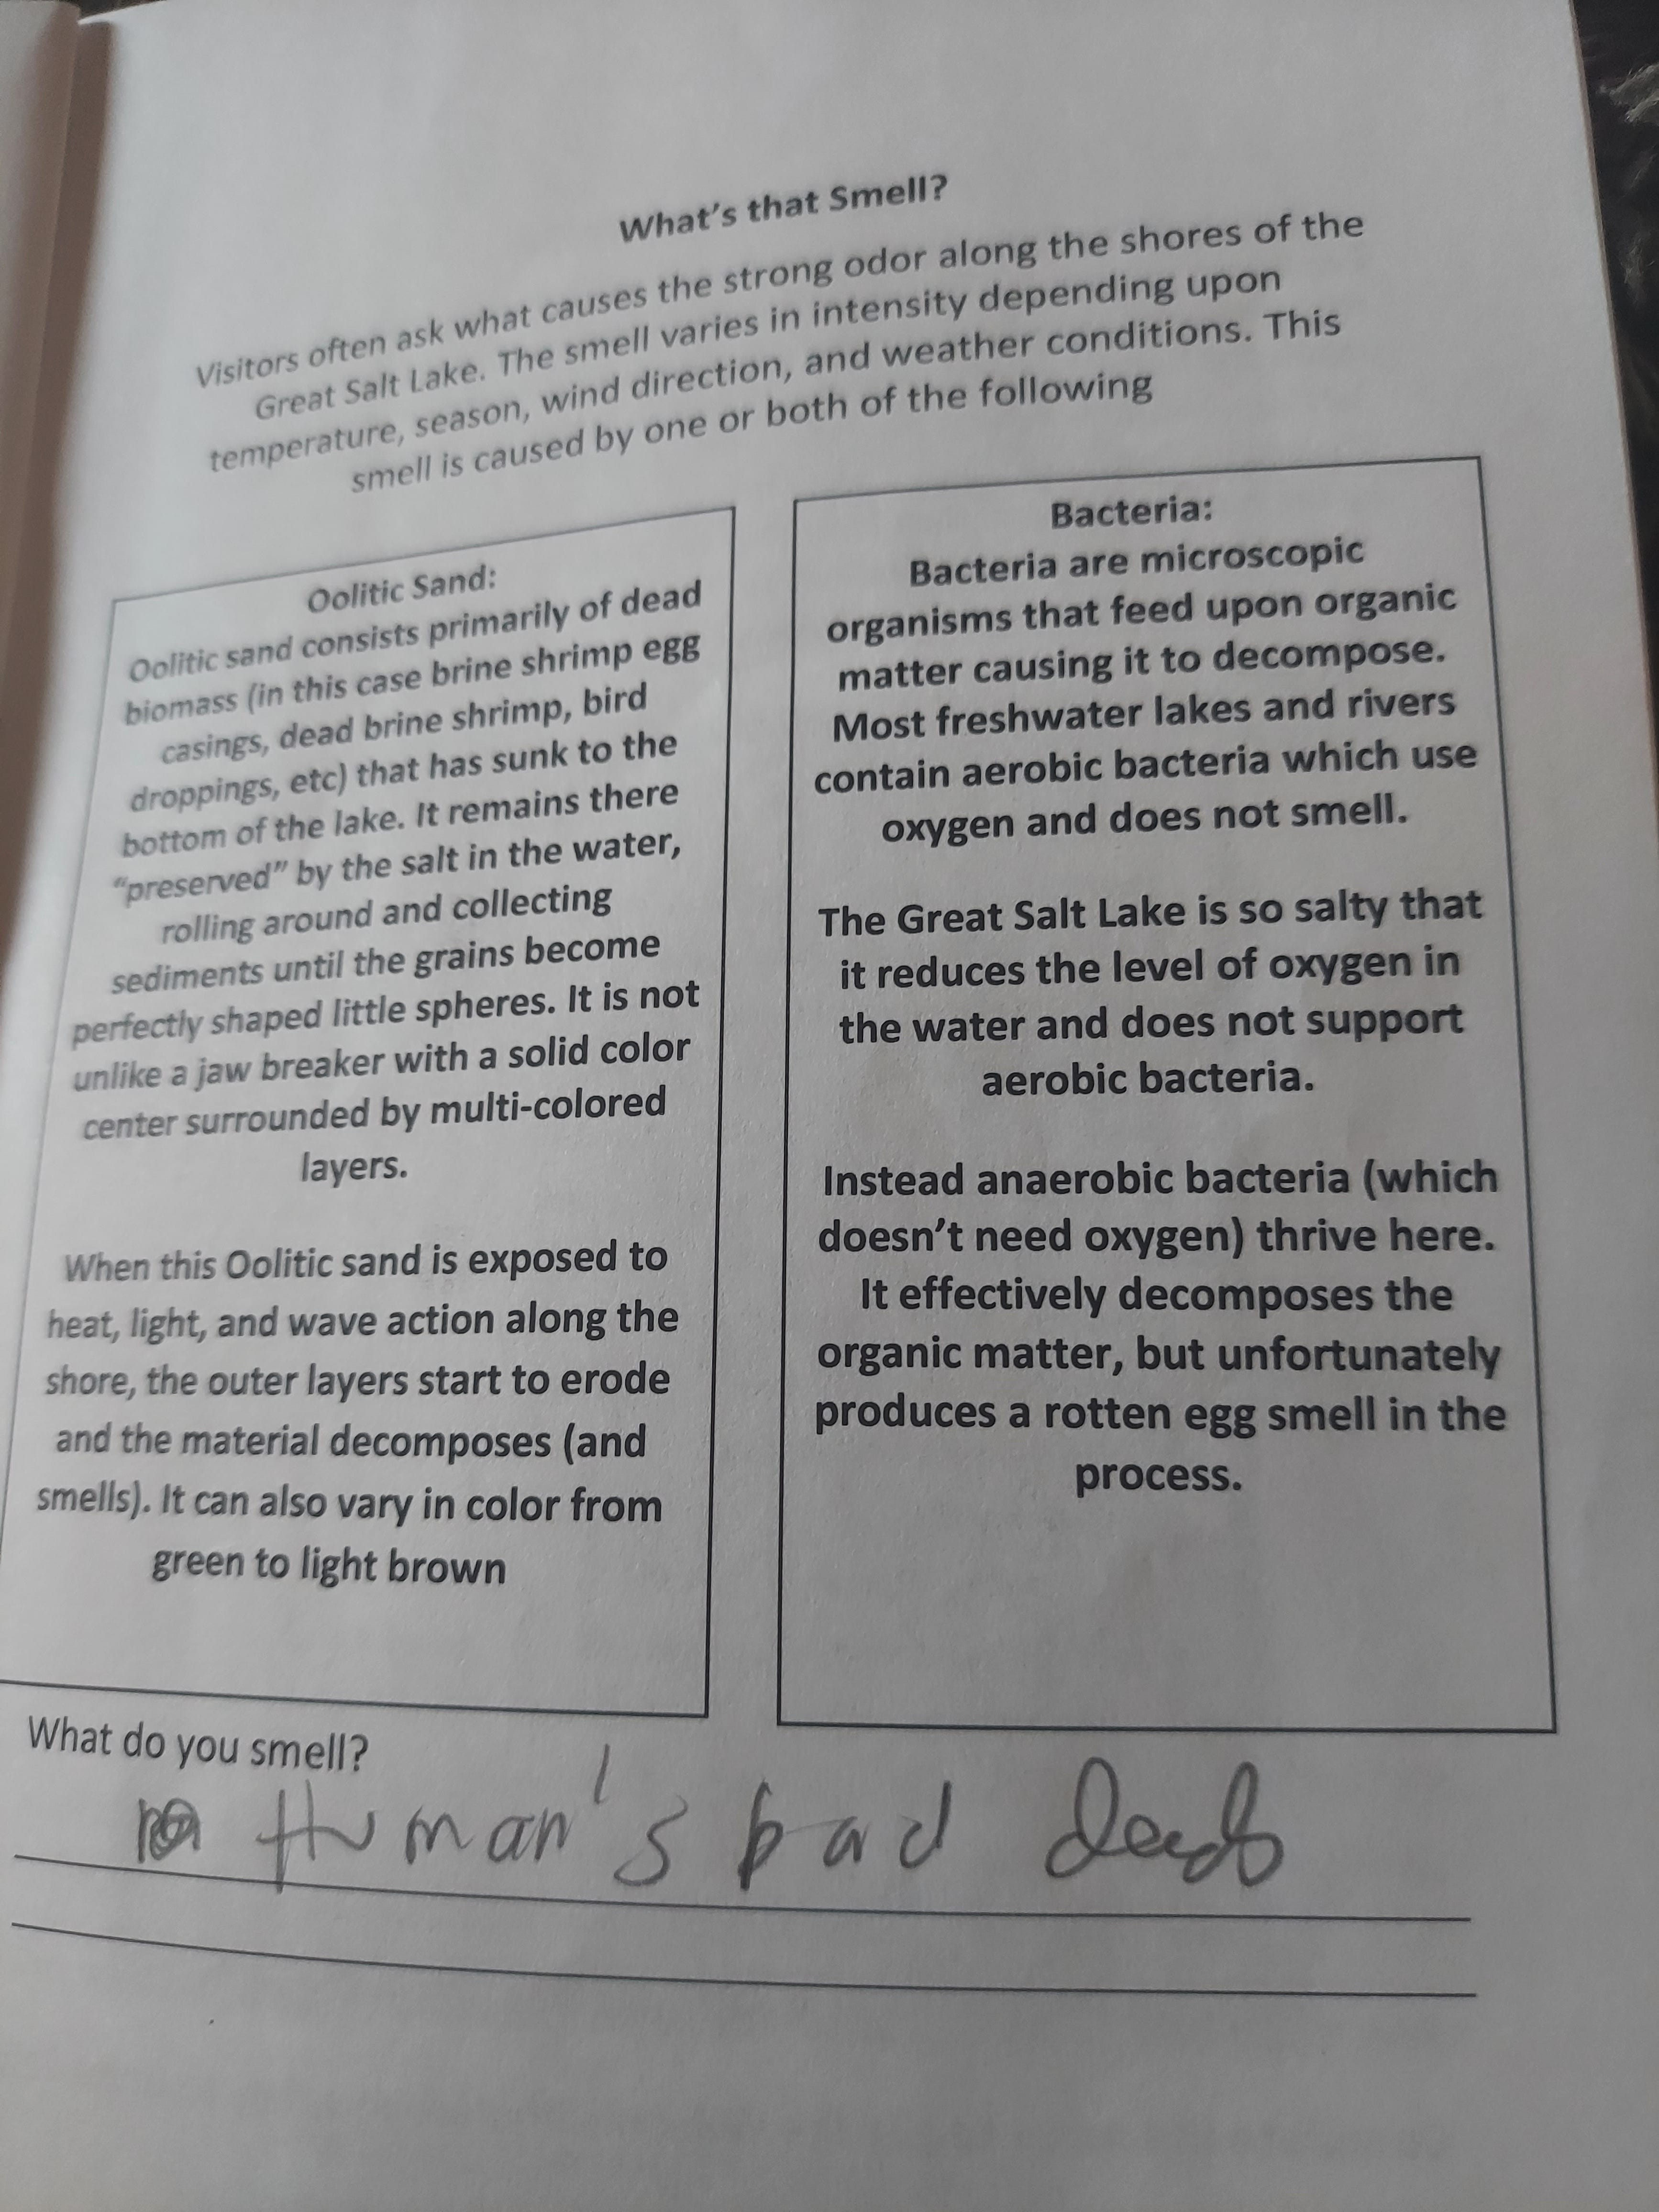 What's that Smell?
Visitors often ask what causes the strong odor along the shores of the
Great Salt Lake. The smell varies in intensity depending upon
temperature, season, wind direction, and weather conditions. This
smell is caused by one or both of the following
Oolitic Sand:
Oolitic sand consists primarily of dead
biomass (in this case brine shrimp egg
casings, dead brine shrimp, bird
droppings, etc) that has sunk to the
bottom of the lake. It remains there
“preserved” by the salt in the water,
rolling around and collecting
sediments until the grains become
perfectly shaped little spheres. It is not
unlike a jaw breaker with a solid color
center surrounded by multi-colored
layers.
When this Oolitic sand is exposed to
heat, light, and wave action along the
shore, the outer layers start to erode
and the material decomposes (and
smells). It can also vary in color from
green to light brown
Bacteria:
Bacteria are microscopic
organisms that feed upon organic
matter causing it to decompose.
Most freshwater lakes and rivers
contain aerobic bacteria which use
oxygen and does not smell.
The Great Salt Lake is so salty that
it reduces the level of oxygen in
the water and does not support
aerobic bacteria.
Instead anaerobic bacteria (which
doesn't need oxygen) thrive here.
It effectively decomposes the
organic matter, but unfortunately
produces a rotten egg smell in the
process.
What do you smell?
Human's bad